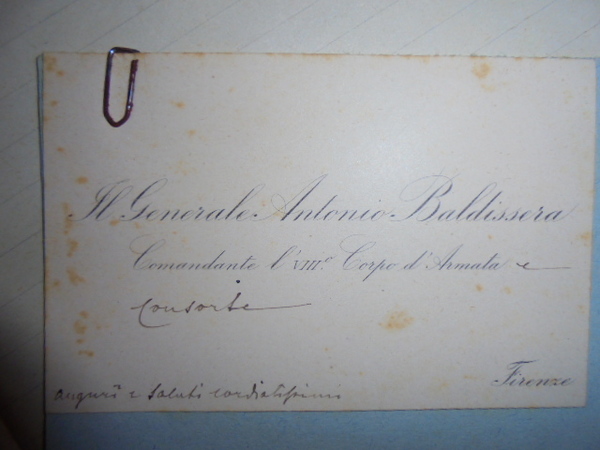 Il Generale Antonio Baldissera
Comandante l'VIII.º Corpo d'Armata e
Consorte
Firenze
auguri e saluti cordialissimi